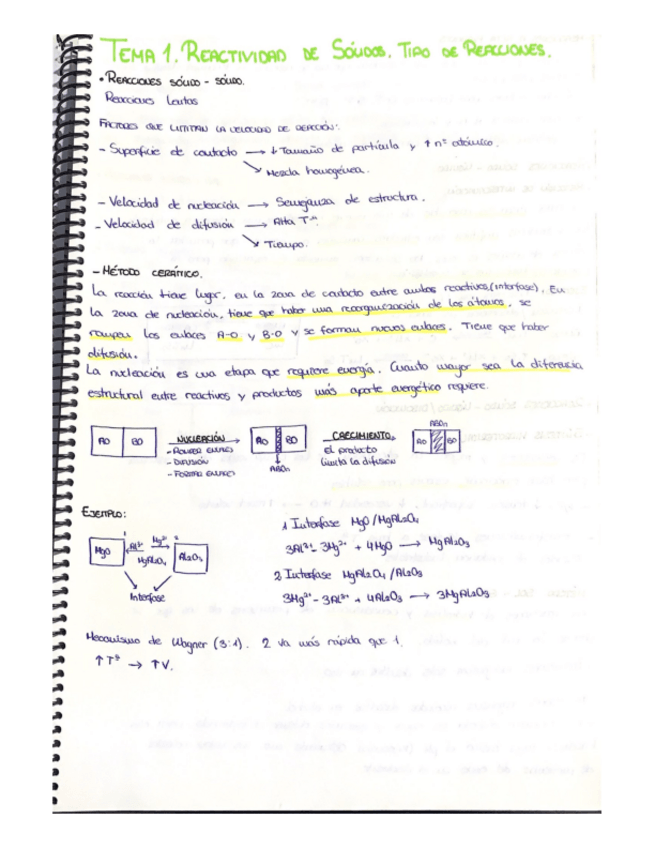 TEMA 1. REACTIVIDAD DE SÓLIDOS. TIPO DE REACCIONES.
• REACCIONES SÓLIDO - SÓLIDO.
Reacciones Lentas
FACTORES QUE LIMITAN LA VELOCIDAD DE REACCIÓN:
- Superficie de contacto → ↓ Tamaño de partícula y ↑ nº atómico.
↘ Mezcla homogénea.
- Velocidad de nucleación → Semejanza de estructura.
- Velocidad de difusión → Alta Tª.
↘ Tiempo.
- MÉTODO CERÁMICO.
La reacción tiene lugar, en la zona de contacto entre ambos reactivos (interfase). En
la zona de nucleación, tiene que haber una reorganización de los átomos, se
rompen los enlaces A-O y B-O y se forman nuevos enlaces. Tiene que haber
difusión.
La nucleación es una etapa que requiere energía. Cuanto mayor sea la diferencia
estructural entre reactivos y productos más aporte energético requiere.
ABOn
AO BO NUCLEACIÓN AO BO CRECIMIENTO AO BO
- ROMPER ENLACES
- DIFUSIÓN
- FORMAR ENLACES
ABOn
el producto
limita la difusión
EJEMPLO:
1 2
MgO Al³⁺ Mg²⁺ Al₂O₃
MgAl₂O₄
Interfase
1 Interfase MgO/MgAl₂O₄
3Al³⁺- 3Mg²⁺ + 4MgO → MgAl₂O₃
2 Interfase MgAl₂O₄/Al₂O₃
3Mg²⁺- 3Al³⁺ + 4Al₂O₃ → 3MgAl₂O₃
Mecanismo de Wagner (3:1). 2 va más rápida que 1.
↑ Tª → ↑ V.